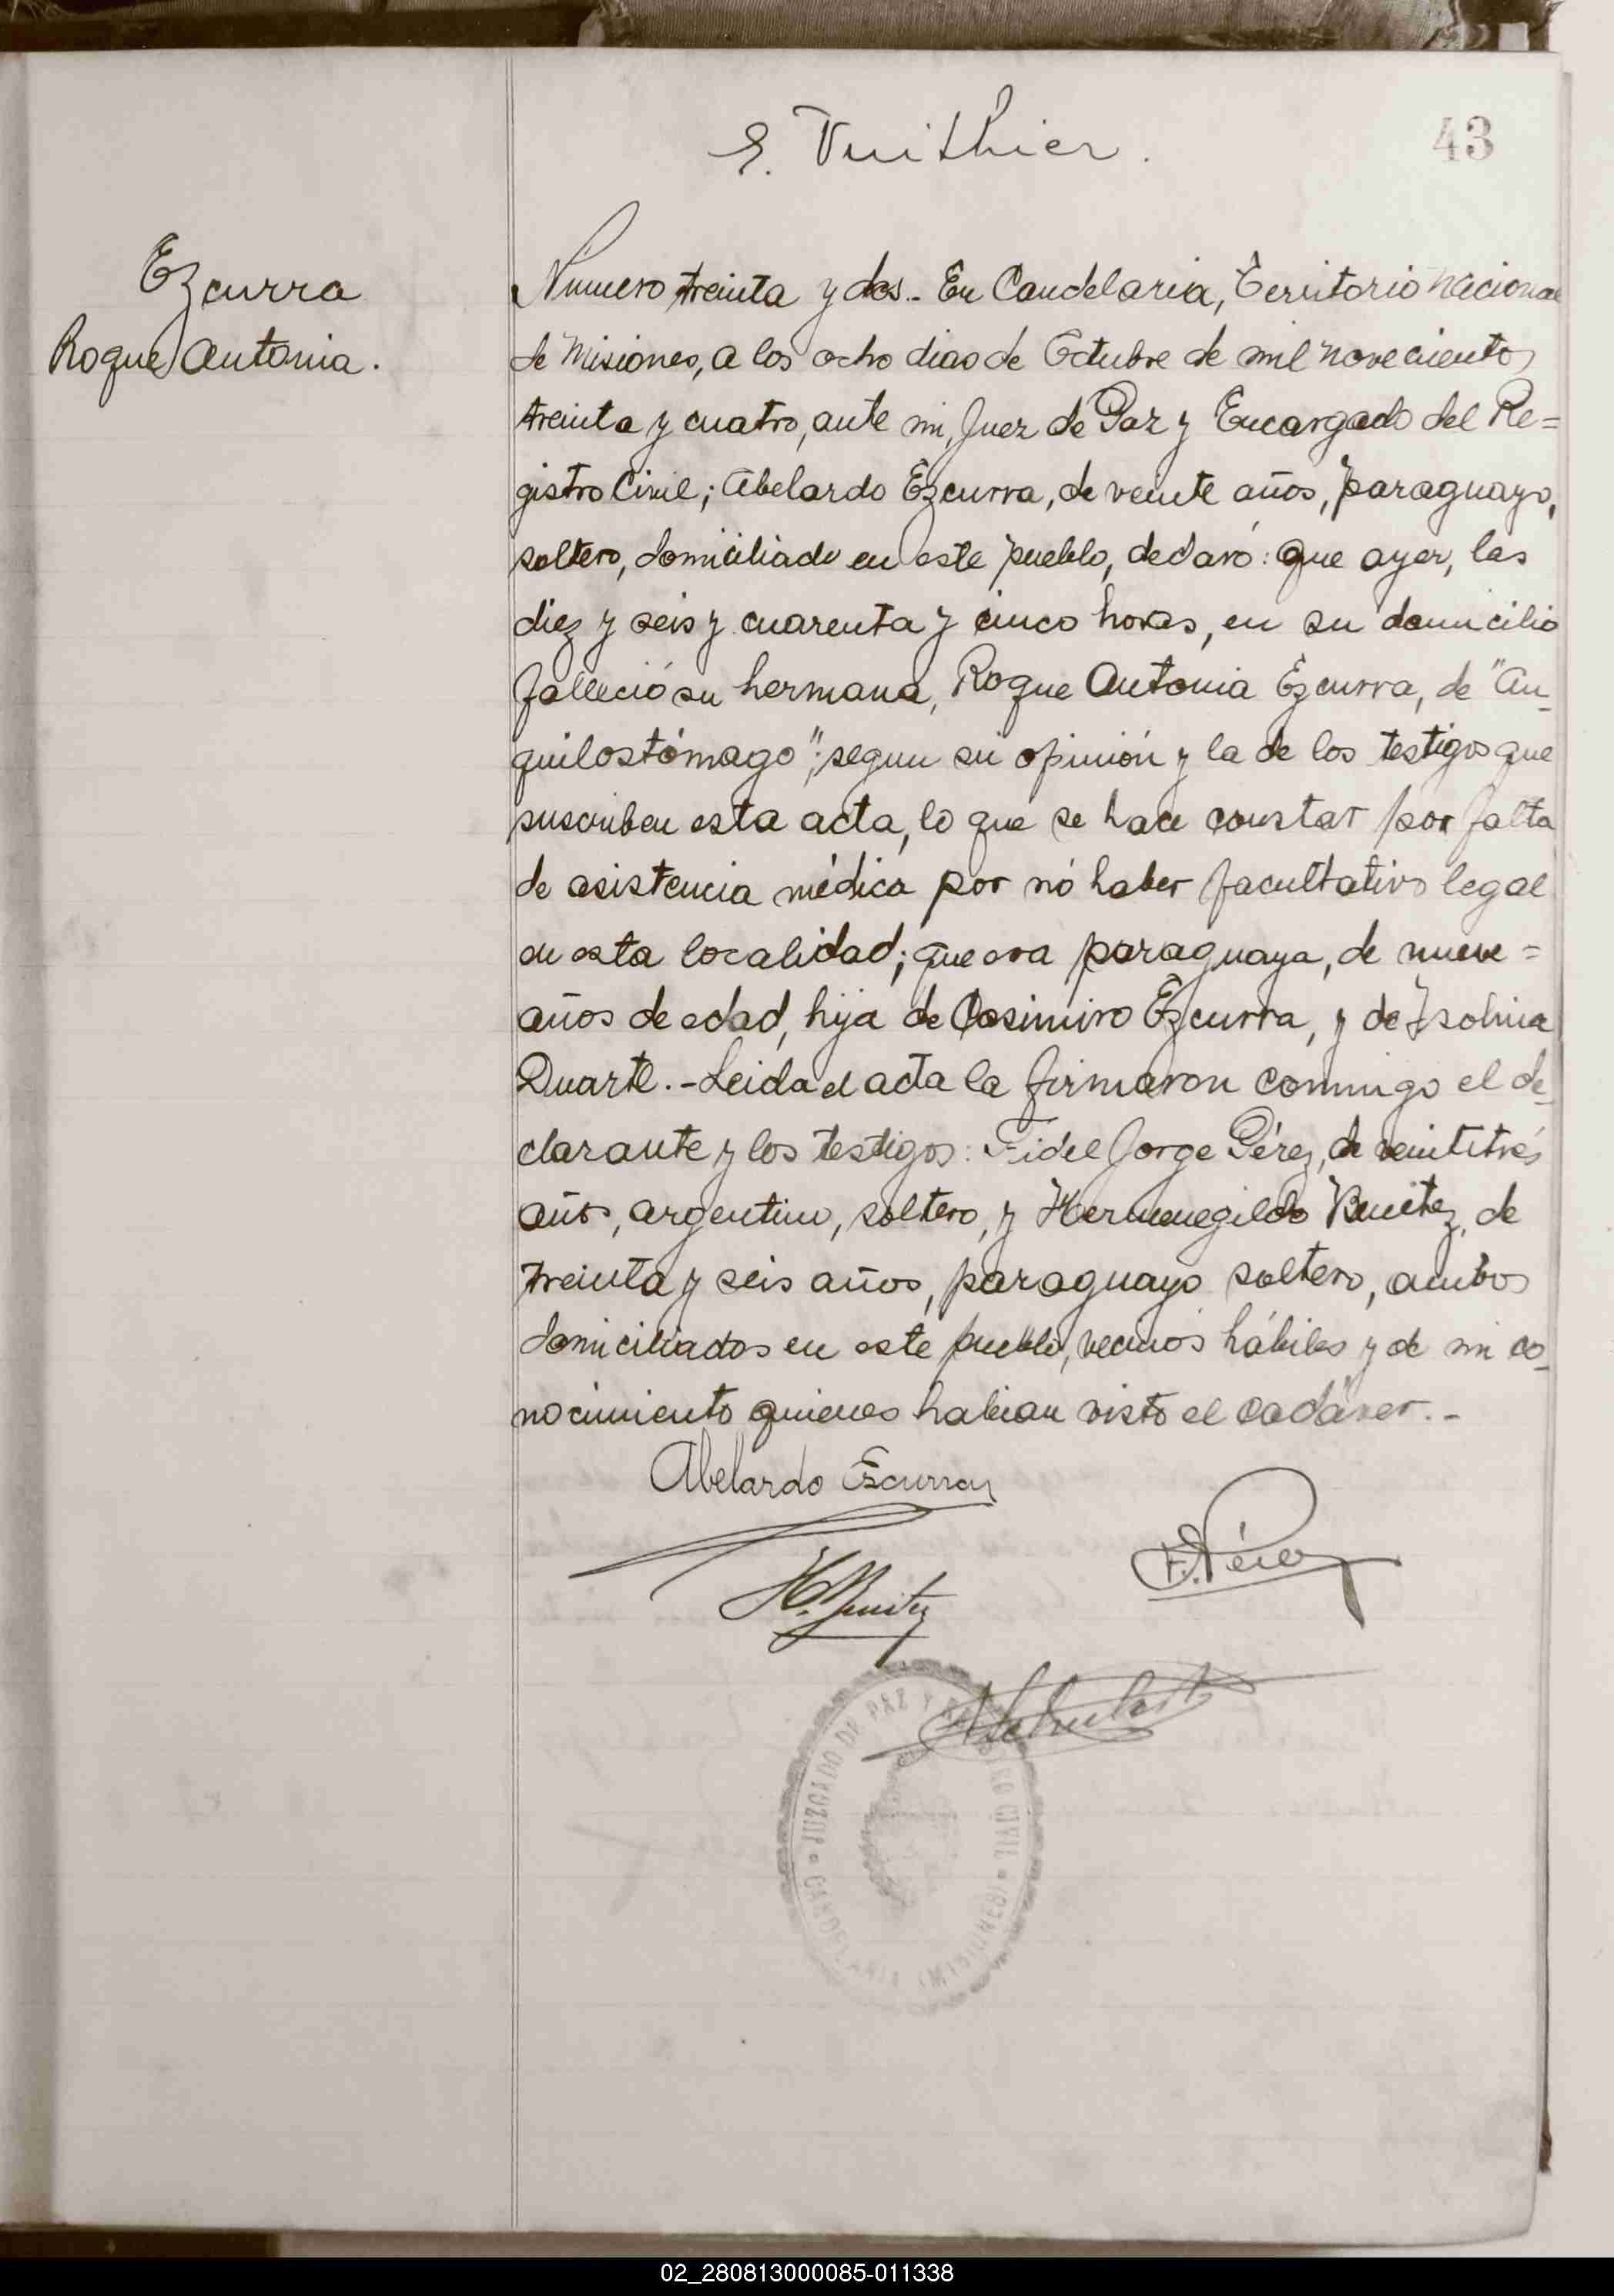 E. Vuithier.
43
Ezcurra
Roque Antonia.
Numero treinta y dos.- En Candelaria, Territorio Nacional
de Misiones, a los ocho dias de Octubre de mil novecientos
treinta y cuatro, ante mi, Juez de Paz y Encargado del Re=
gistro Civil; Abelardo Ezcurra, de veinte años, paraguayo,
soltero, domiciliado en este pueblo, declaró: que ayer, las
diez y seis y cuarenta y cinco horas, en su domicilio
falleció su hermana, Roque Antonia Ezcurra, de "An-
quilostómago"; segun su opinión y la de los testigos que
suscriben esta acta, lo que se hace constar por falta
de asistencia médica por nó haber facultativo legal
en esta localidad; que era paraguaya, de nueve =
años de edad, hija de Casimiro Ezcurra, y de Isolina
Duarte.- Leida el acta la firmaron conmigo el de-
clarante y los testigos: Fidel Jorge Pérez, de veintitrés
años, argentino, soltero, y Hermenegildo Benitez, de
treinta y seis años, paraguayo soltero, ambos
domiciliados en este pueblo, vecinos hábiles y de mi co-
nocimiento quienes habian visto el cadáver.-
Abelardo Ezcurra
F. Pérez
H. Benitez
JUZGADO DE PAZ Y REGISTRO CIVIL
CANDELARIA (MISIONES)
02_280813000085-011338